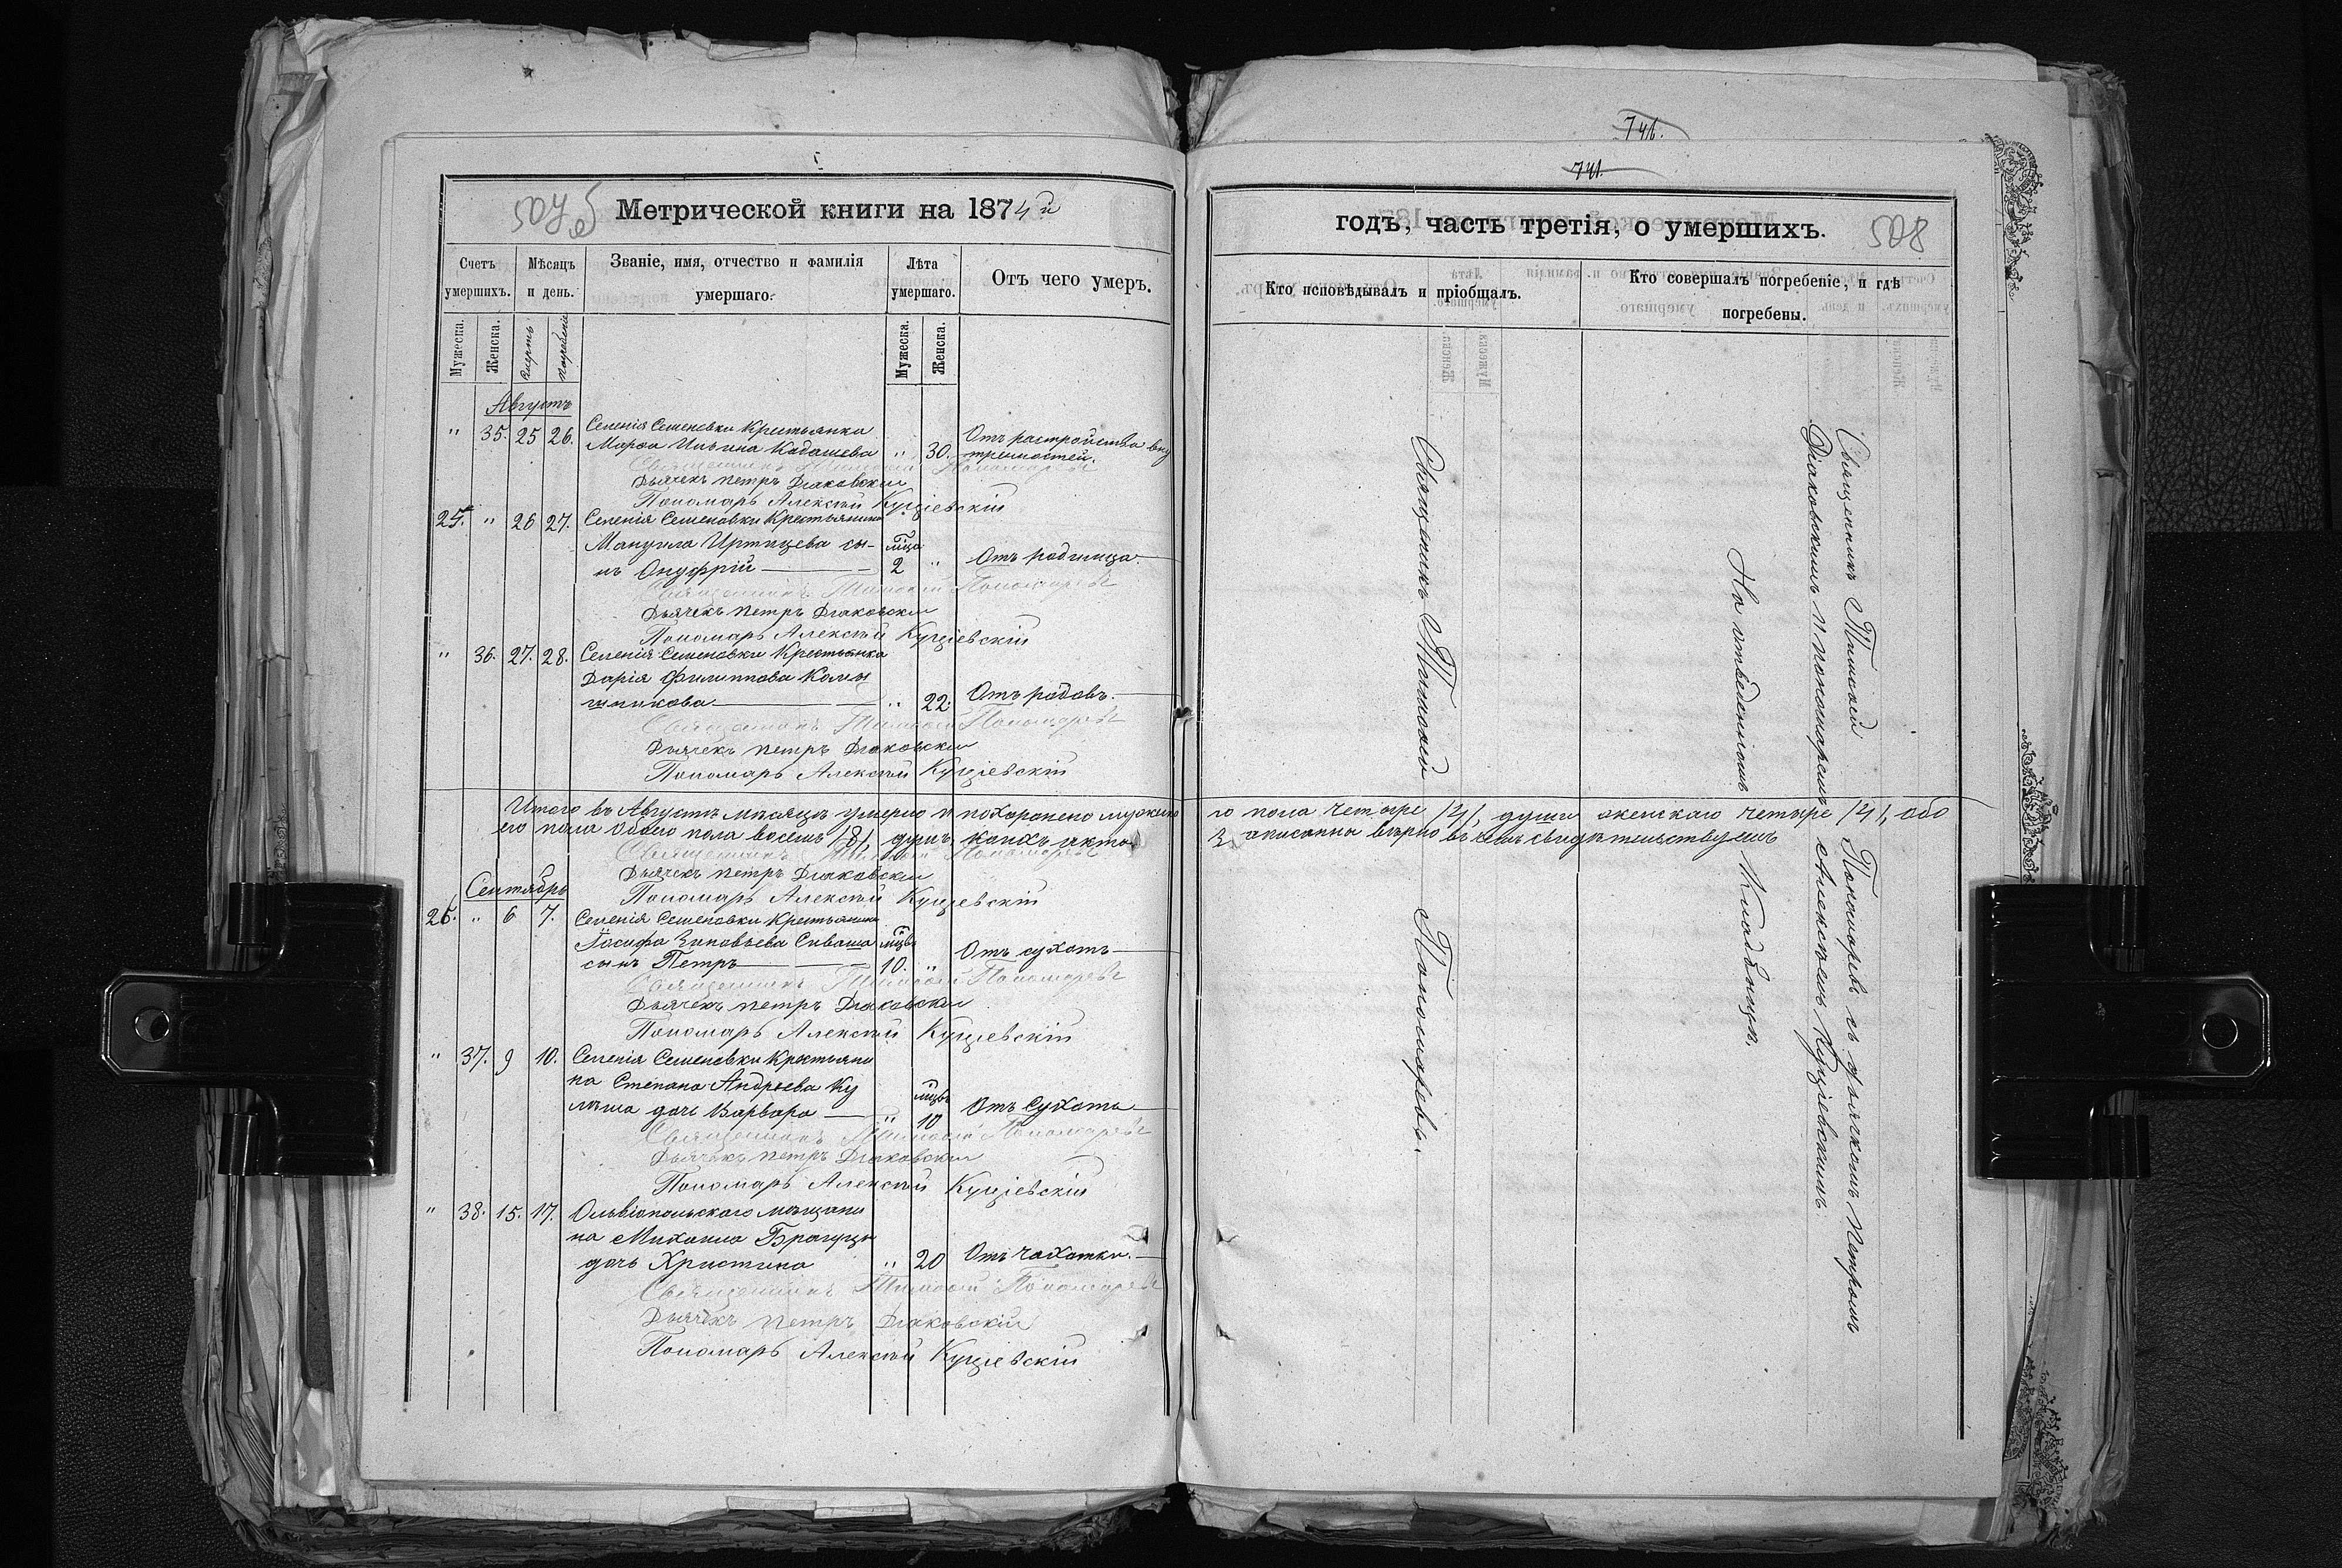 741.
741.
507 об
Метрической книги на 1874 й
годъ, часть третія, о умершихъ.
508
Счетъ умершихъ.
Мѣсяцъ и день.
Званіе, имя, отчество и фамилія умершаго.
Лѣта умершаго.
Отъ чего умеръ.
Кто исповѣдывалъ и пріобщалъ.
Кто совершалъ погребеніе, и гдѣ погребены.
Мужеска.
Женска.
смерть
погребенія
Мужеска.
Женска.
Августъ
" 35. 25 26. Селенія Семеновки Крестьянка
Марѳа Ильина Кадашева " 30. Отъ растройства вну
тренностей.
Священникъ Тимоѳей Пономаревъ
Дьячекъ Петръ Діаковскій
Пономарь Алексѣй Кущевскій
25. " 26 27. Селенія Семеновки Крестьянина
Мануила Иртищева сы- мца
нъ Онуфрій 2 " Отъ родимца.
Священникъ Тимоѳей Пономаревъ
Дьячекъ Петръ Діаковскій
Пономарь Алексѣй Кущевскій
" 36. 27. 28. Селенія Семеновки Крестьянка
Дарія Филиппова Камы
шникова " 22. Отъ родовъ.
Священникъ Тимоѳей Пономаревъ
Дьячекъ Петръ Діаковскій
Пономарь Алексѣй Кущевскій
Итого въ Августѣ мѣсяцѣ умерло и похоронено мужеска
го пола четыре /4/, души женскаго четыре /4/, обо
его пола обоего пола восемь /8/, душъ, какихъ актовъ
записанна вѣрно въ чемъ свидѣтельствуемъ
Священникъ Тимоѳей Пономаревъ
Дьячекъ Петръ Діаковскій
Пономарь Алексѣй Кущевскій
Сентябрь
26. " 6 7. Селенія Семеновки Крестьянина
Іосифа Зиновьева Сиваша мцв
сынъ Петръ 10. " Отъ сухотъ
Священникъ Тимоѳей Пономаревъ
Дьячекъ Петръ Діаковскій
Пономарь Алексѣй Кущевскій
" 37. 9 10. Селенія Семеновки Крестьяни
на Степана Андреева Ку
лѣша дочь Варвара " мцв 10 Отъ сухотъ
Священникъ Тимоѳей Пономаревъ
Дьячекъ Петръ Діаковскій
Пономарь Алексѣй Кущевскій
" 38. 15. 17. Ольвіопольскаго мѣщани
на Михаила Брагуцы
дочь Христина " 20 Отъ чахотки.
Священникъ Тимоѳей Пономаревъ
Дьячекъ Петръ Діаковскій
Пономарь Алексѣй Кущевскій
Священникъ Тимоѳей Пономаревъ.
Священникъ Тимоѳей Пономаревъ съ дьячкомъ Петромъ
Діаковскимъ и пономаремъ Алексѣемъ Кущевскимъ
На отведенномъ кладбищѣ.